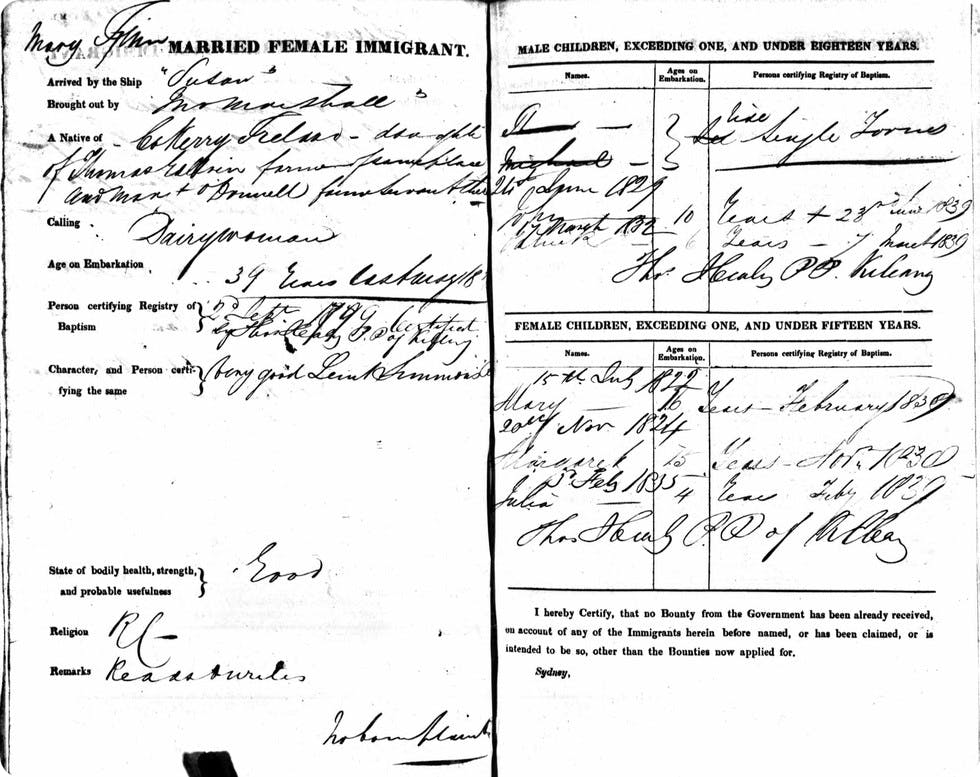 Mary Flinn MARRIED FEMALE IMMIGRANT.
Arrived by the Ship "Susan"
Brought out by Jno Marshall
A Native of Co Kerry Ireland - daughter
of Thomas farmer same place
and Mary O'Donnell
Calling Dairywoman
Age on Embarkation 39 Years last
Person certifying Registry of Baptism Sept 1799 Certificate
by Thos Healy P.P. of
Character, and Person certifying the same Very good Lieut Simmons
State of bodily health, strength, and probable usefulness Good
Religion RC
Remarks Reads & writes
No complaint
MALE CHILDREN, EXCEEDING ONE, AND UNDER EIGHTEEN YEARS.
Names. Ages on Embarkation. Persons certifying Registry of Baptism.
Vide
Single Forms
Michael
24th June 1829
John 10 Years + 23rd June 1839
17 March 1832
6 Years - 7 March 1839
Thos Healy P.P.
FEMALE CHILDREN, EXCEEDING ONE, AND UNDER FIFTEEN YEARS.
Names. Ages on Embarkation. Persons certifying Registry of Baptism.
15th July 1822
Mary 16 Years - February 1839
20th Nov 1824
Margaret 15 Years - Novr 1838
3rd Feby 1835
Julia 4 Years Feby 1839
Thos Healy P.P. of
I hereby Certify, that no Bounty from the Government has been already received,
on account of any of the Immigrants herein before named, or has been claimed, or is
intended to be so, other than the Bounties now applied for.
Sydney,